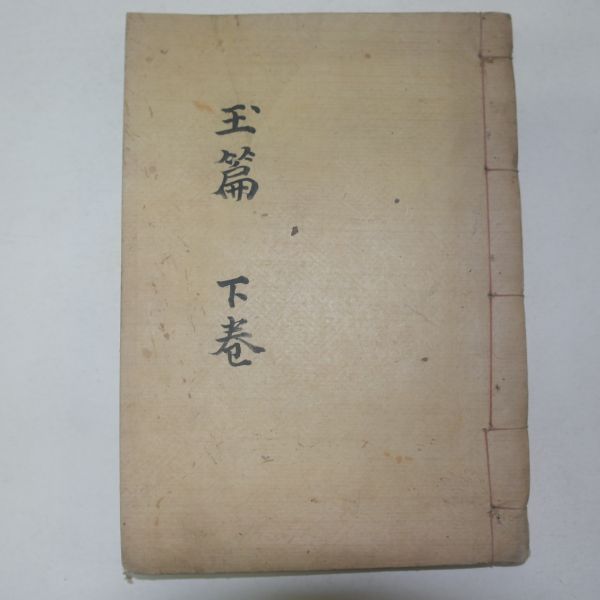 玉篇 下卷